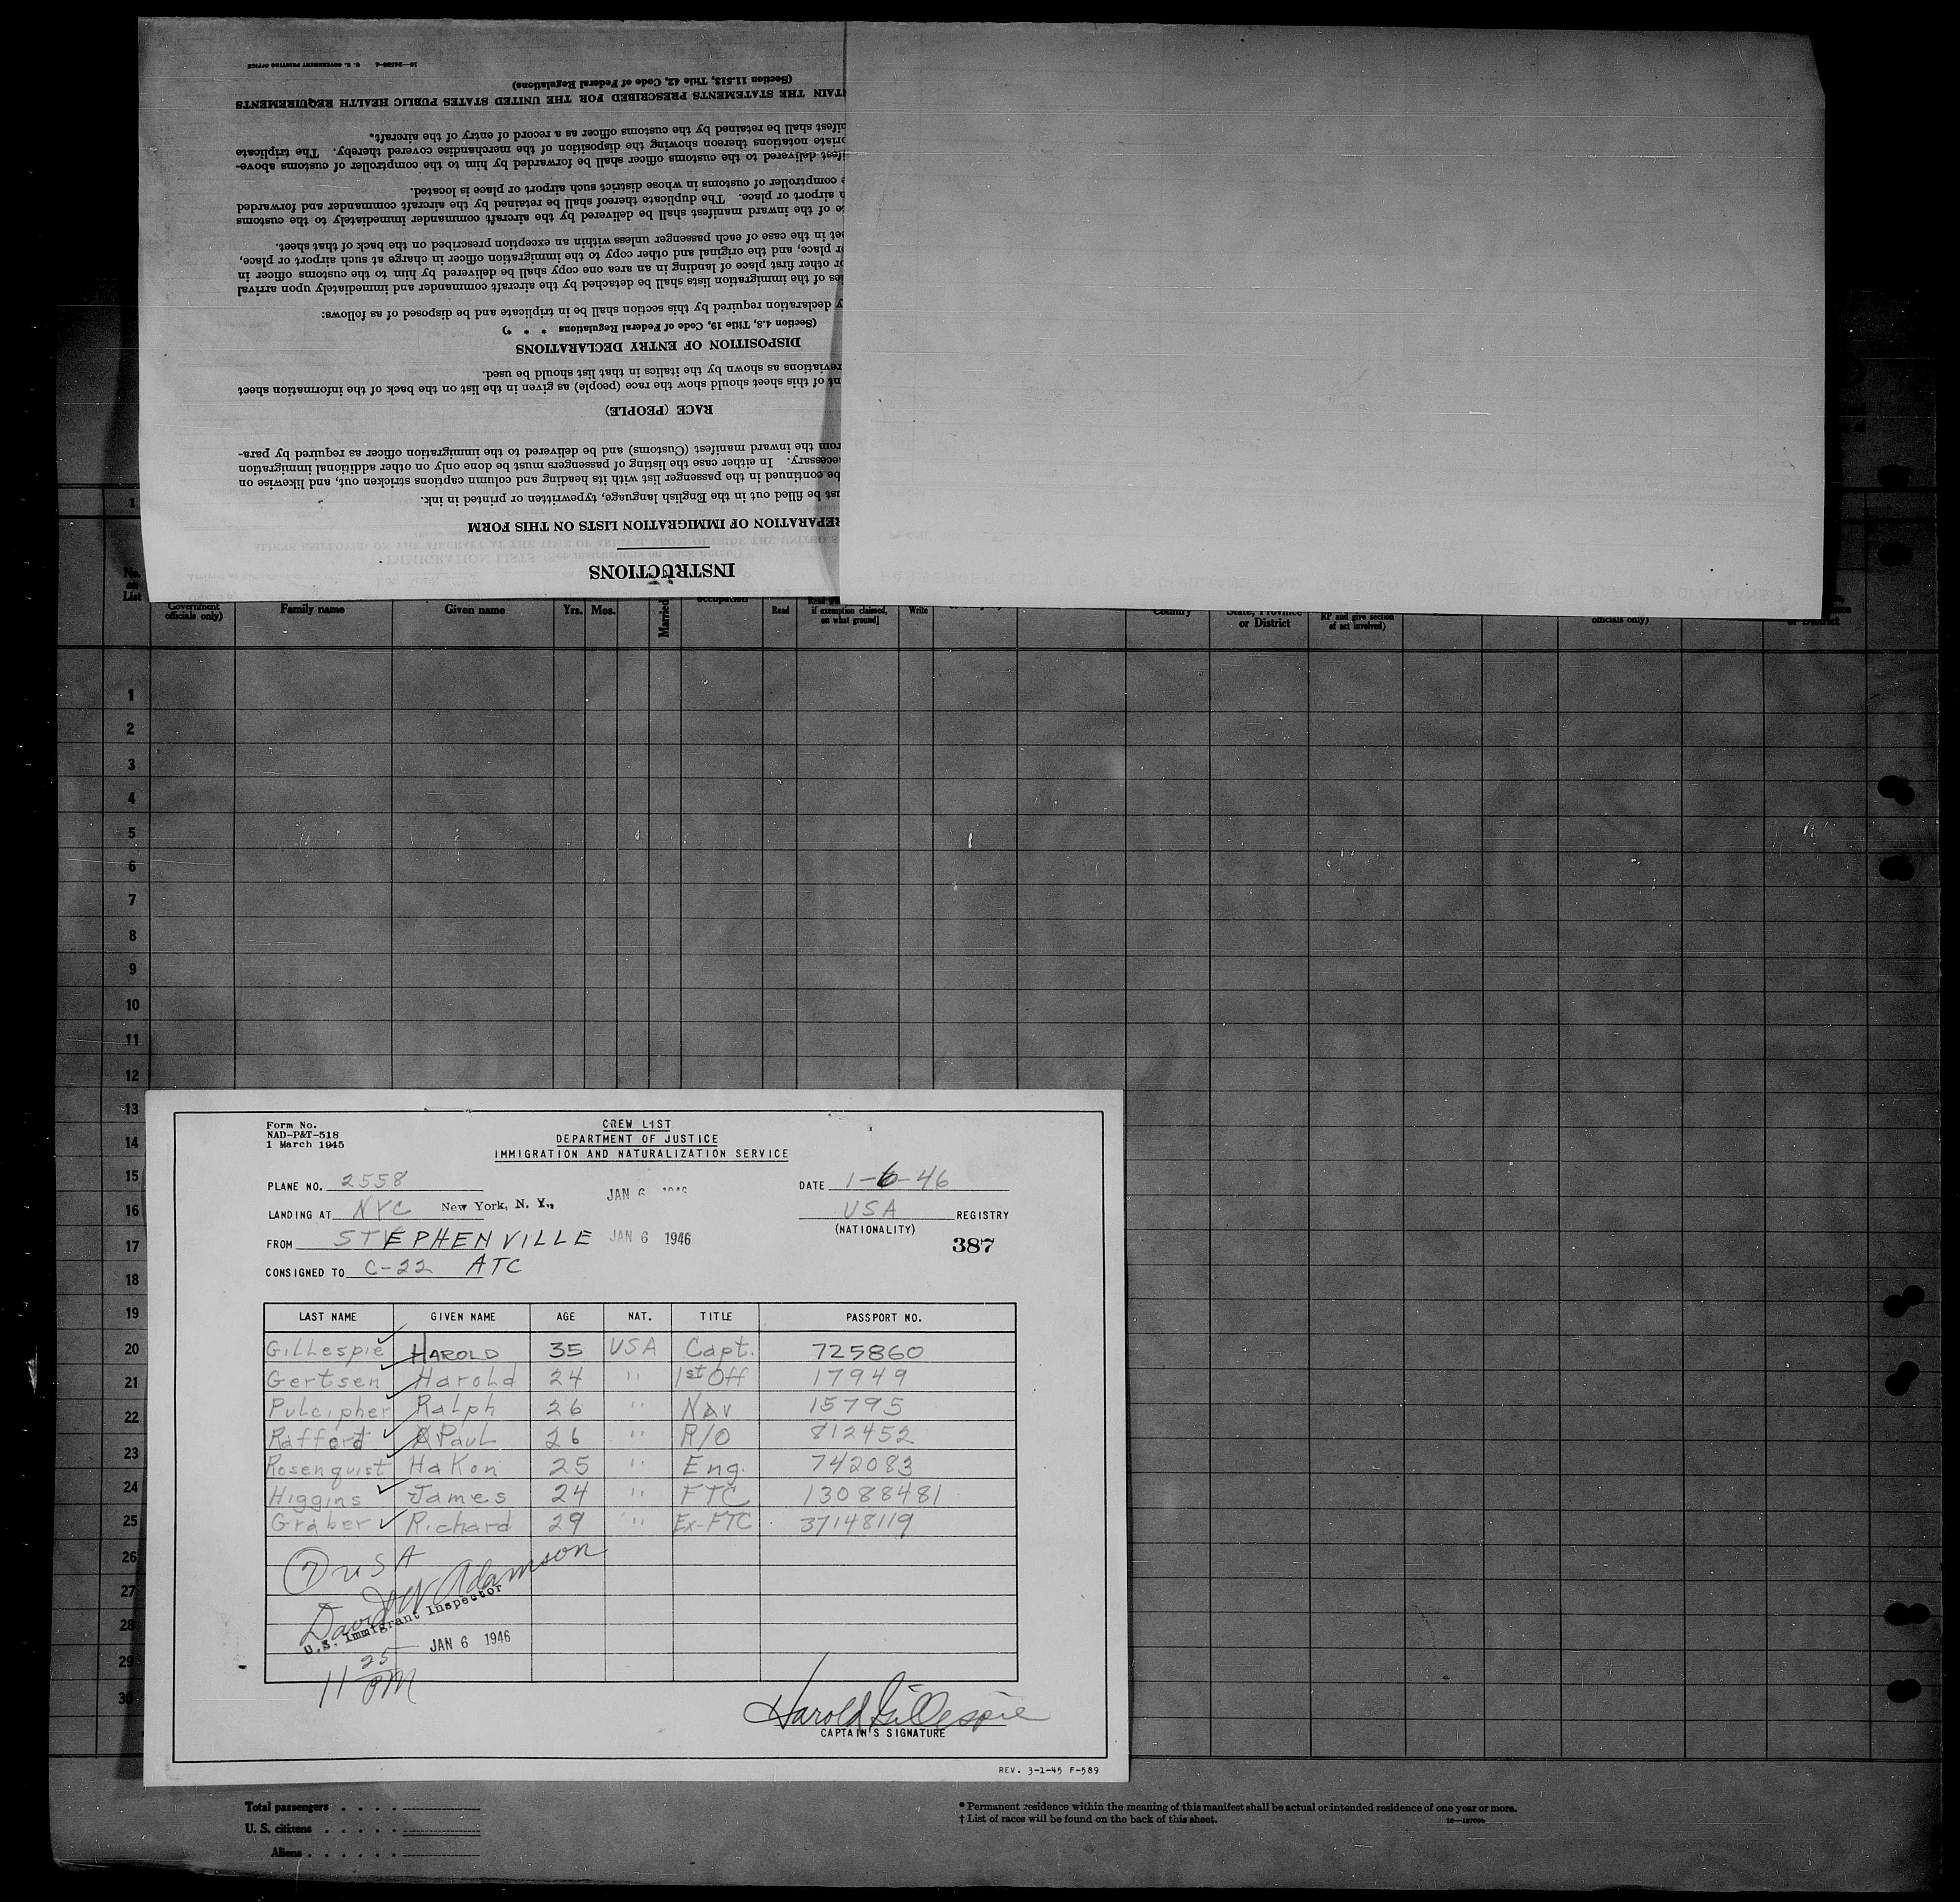 INSTRUCTIONS
EPARATION OF IMMIGRATION LISTS ON THIS FORM
ust be filled out in the English language, typewritten or printed in ink.
be continued in the passenger list with its heading and column captions stricken out, and likewise on
ecessary. In either case the listing of passengers must be done only on other additional immigration
rom the inward manifest (Customs) and be delivered to the immigration officer as required by para-
RACE (PEOPLE)
nt of this sheet should show the race (people) as given in the list on the back of the information sheet
reviations as shown by the italics in that list should be used.
DISPOSITION OF ENTRY DECLARATIONS
(Section 4.8, Title 19, Code of Federal Regulations * * *)
y declaration required by this section shall be in triplicate and be disposed of as follows:
ies of the immigration lists shall be detached by the aircraft commander and immediately upon arrival
or other first place of landing in an area one copy shall be delivered by him to the customs officer in
or place, and the original and other copy to the immigration officer in charge at such airport or place,
eet in the case of each passenger unless within an exception prescribed on the back of that sheet.
te of the inward manifest shall be delivered by the aircraft commander immediately to the customs
h airport or place. The duplicate thereof shall be retained by the aircraft commander and forwarded
e comptroller of customs in whose district such airport or place is located.
ifest delivered to the customs officer shall be forwarded by him to the comptroller of customs above-
priate notations thereon showing the disposition of the merchandise covered thereby. The triplicate
nifest shall be retained by the customs officer as a record of entry of the aircraft.
TAIN THE STATEMENTS PRESCRIBED FOR THE UNITED STATES PUBLIC HEALTH REQUIREMENTS
(Section 11.513, Title 42, Code of Federal Regulations)
U. S. GOVERNMENT PRINTING OFFICE
1
No. on List
Government officials only)
Family name
Given name
Yrs.
Mos.
Married
Read
if exemption claimed, on what ground]
Write
Country
State, Province or District
RP and give section of act involved)
officials only)
or District
1
2
3
4
5
6
7
8
9
10
11
12
13
14
15
16
17
18
19
20
21
22
23
24
25
26
27
28
29
30
Form No.
NAD-P&T-518
1 March 1945
CREW LIST
DEPARTMENT OF JUSTICE
IMMIGRATION AND NATURALIZATION SERVICE
PLANE NO. 2558
JAN 6
DATE 1-6-46
LANDING AT NYC New York, N. Y.,
USA REGISTRY
(NATIONALITY)
FROM STEPHENVILLE JAN 6 1946
387
CONSIGNED TO C-22 ATC
LAST NAME GIVEN NAME AGE NAT. TITLE PASSPORT NO.
Gillespie HAROLD 35 USA Capt. 725860
Gertsen Harold 24 " 1st Off 17949
Pulcipher Ralph 26 " Nav 15795
Rafford Paul 26 " R/O 812452
Rosenquist Hakon 25 " Eng. 742083
Higgins James 24 " FTC 13088481
Graber Richard 29 " Ex-FTC 37148119
7 USA
David W Adamson
U.S. Immigrant Inspector
JAN 6 1946
11 25 PM
Harold Gillespie
CAPTAIN'S SIGNATURE
REV. 3-1-45 F-589
Total passengers . . . .
U. S. citizens . . . . .
Aliens . . . . . .
* Permanent residence within the meaning of this manifest shall be actual or intended residence of one year or more.
† List of races will be found on the back of this sheet.